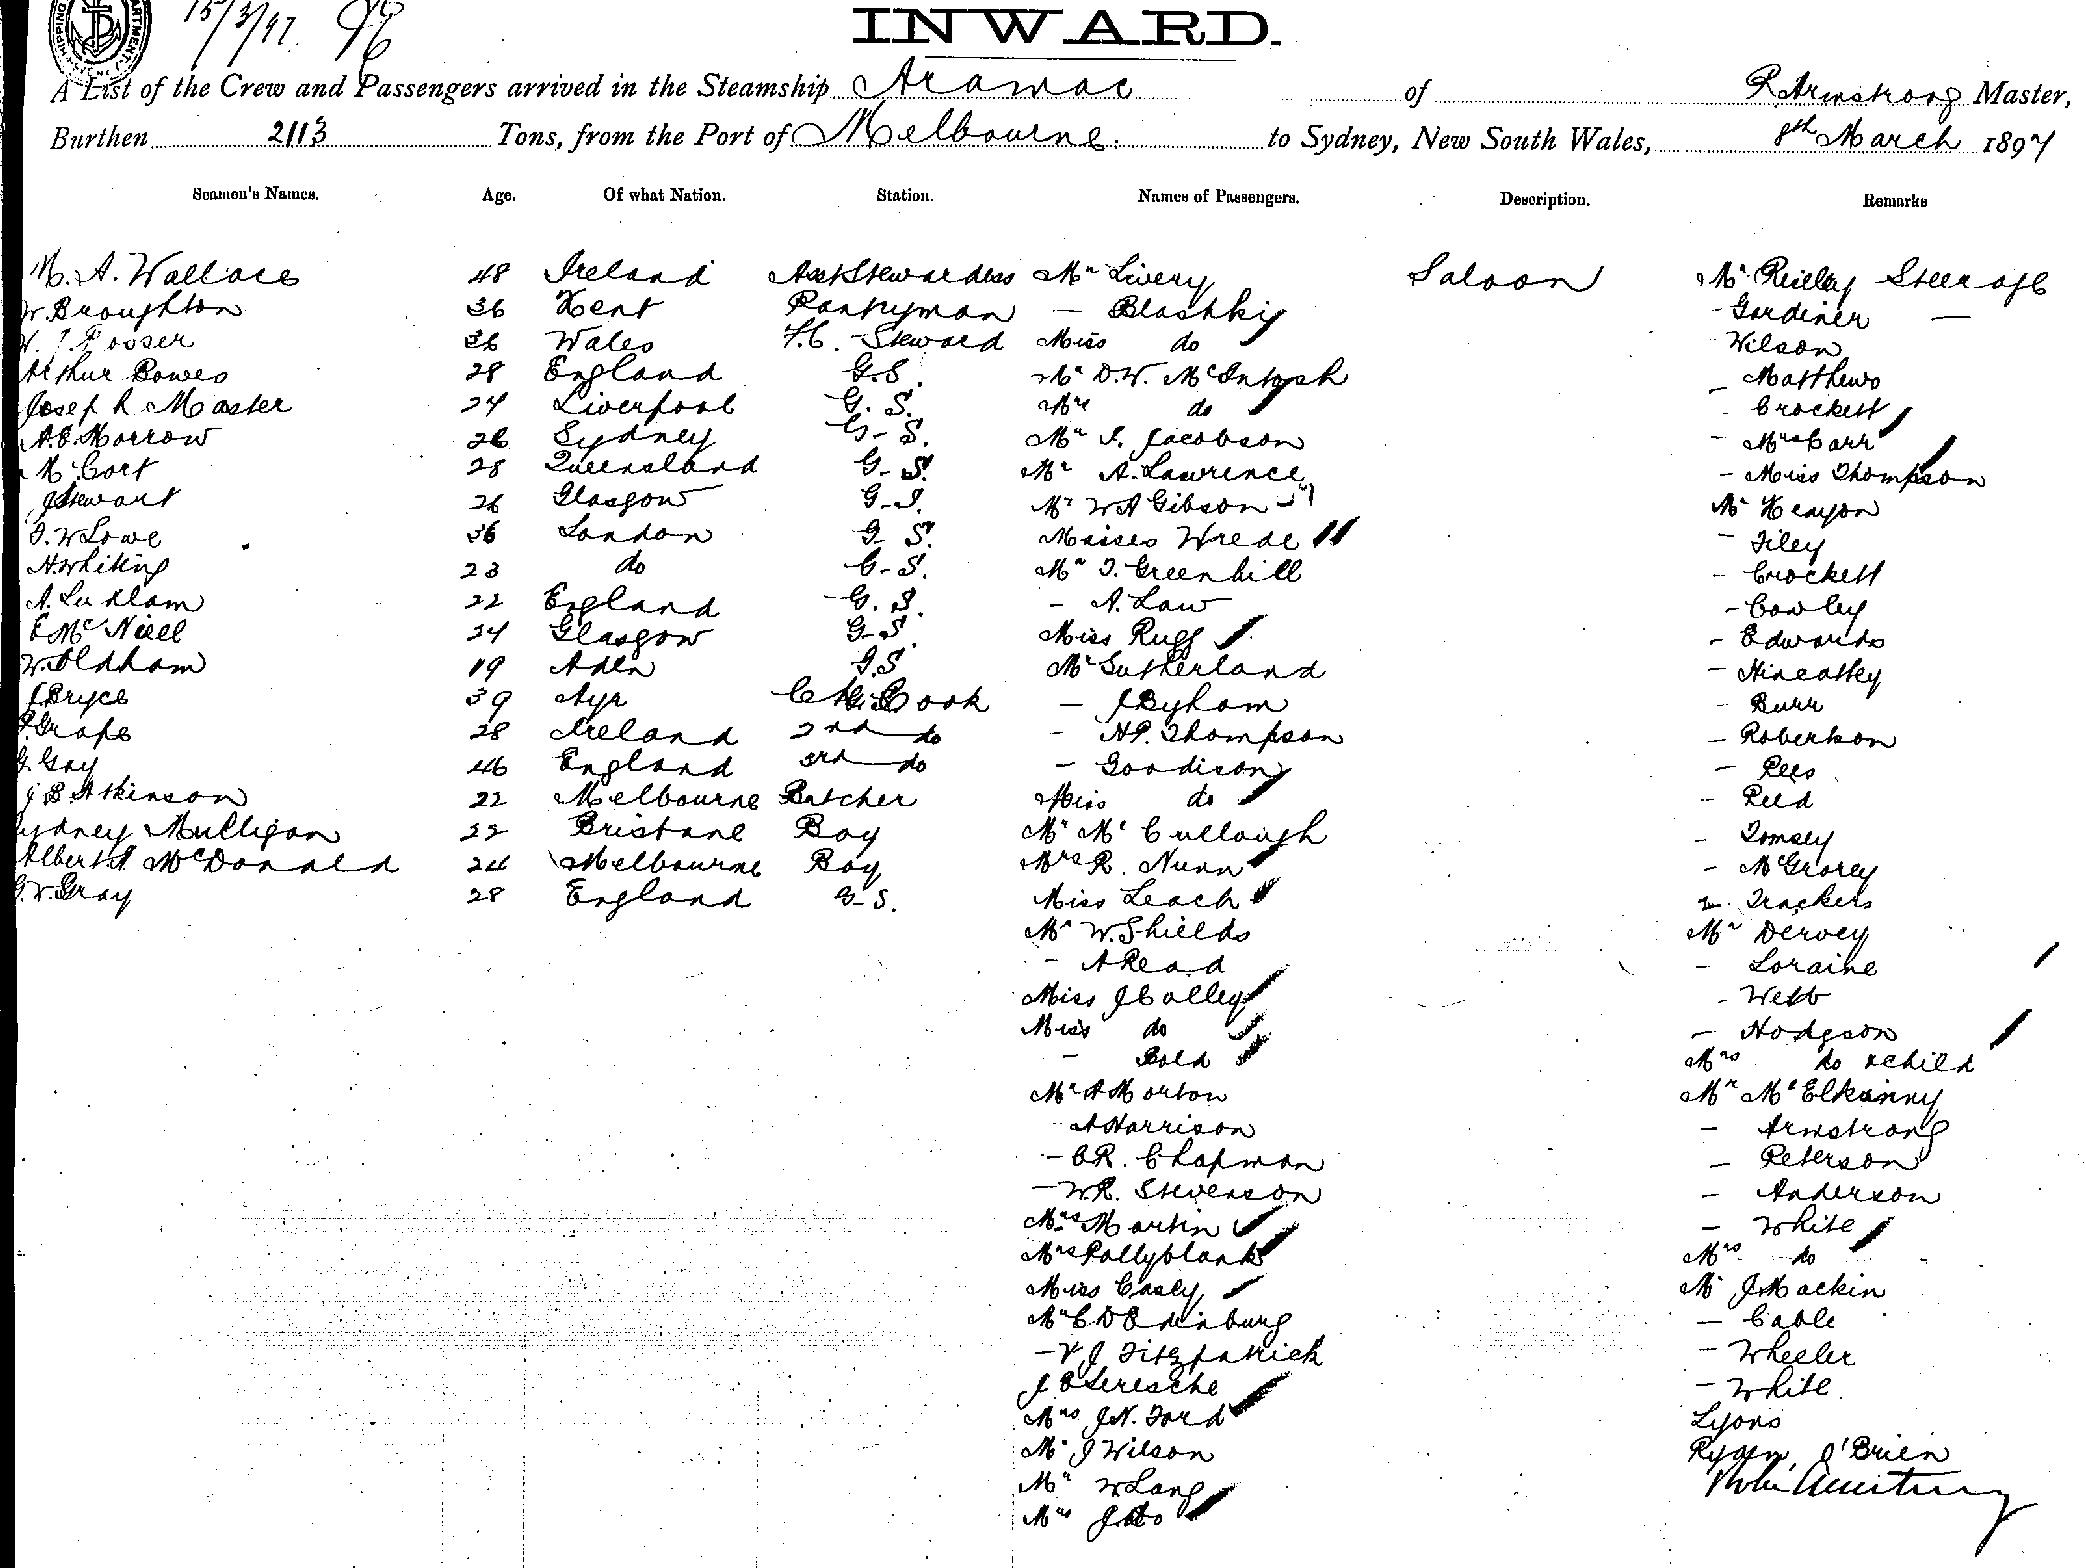 15/3/97.
INWARD.
A List of the Crew and Passengers arrived in the Steamship Aramac of R. Armstrong Master,
Burthen 2113 Tons, from the Port of Melbourne. to Sydney, New South Wales, 8th March 1897
Seamen's Names. Age. Of what Nation. Station. Names of Passengers. Description. Remarks
M. A. Wallace 48 Ireland Asst Stewardess Mr Livery Saloon Mr Reilley Steerage
W. Broughton 36 Kent Pantryman — Blashky - Gardiner —
W. J. Rosser 36 Wales F.C. Steward Miss do Wilson
Arthur Bowes 28 England G.S. Mr D.W. McIntosh - Matthews
Joseph Master 24 Liverpool G.S. Mrs do - Crockett
A.E. Morrow 26 Sydney G.S. Mr I. Jacobson - Mrs Carr
M. Cort 28 Queensland G.S. Mr A. Lawrence - Miss Thompson
J Stewart 26 Glasgow G.S. Mr W A Gibson Mr Kenyon
J. W Lowe 36 London G.S. Misses Wrede - Tiley
H Whiting 23 do G.S. Mr T. Greenhill - Crockett
A. Ludlam 22 England G.S. - A. Law - Cowley
E McNiell 24 Glasgow G.S. Miss Rugg - Edwards
W. Oldham 19 Aden G.S. Mr Sutherland - Hineathey
J Bryce 39 Ayr Ch. Cook — J Byham - Burr
P. Grape 28 Ireland 2nd do - H.P. Thompson - Robertson
G. Gay 46 England 3rd do - Goodison - Rees
J B. Atkinson 22 Melbourne Butcher Miss do - Reed
Sydney Mulligan 22 Brisbane Boy Mr McCullough - Tomsey
Albert A McDonald 24 Melbourne Boy Mrs R. Nunn - McGrorey
G. W. Gray 28 England G.S. Miss Leach 2 Trackers
Mr W. Shields Mr Dervey
- A Read - Loraine
Miss J Colley - Webb
Miss do - Hodgson
- Bold Mrs do & child
Mr A Morton Mr McElkinny
A Harrison - Armstrong
- C.R. Chapman - Peterson
- W.R. Stevenson - Anderson
Mrs Martin - White
Mrs Pollyblank Mrs do
Miss Casely Mr J Mackin
Mr C D Edinburg - Cable
- V J Fitzpatrick - Wheeler
J E Leresche - White
Mrs J.N. Ford Lyons
Mr J Wilson Ryan, O'Brien
Mr W Lang
Mrs do